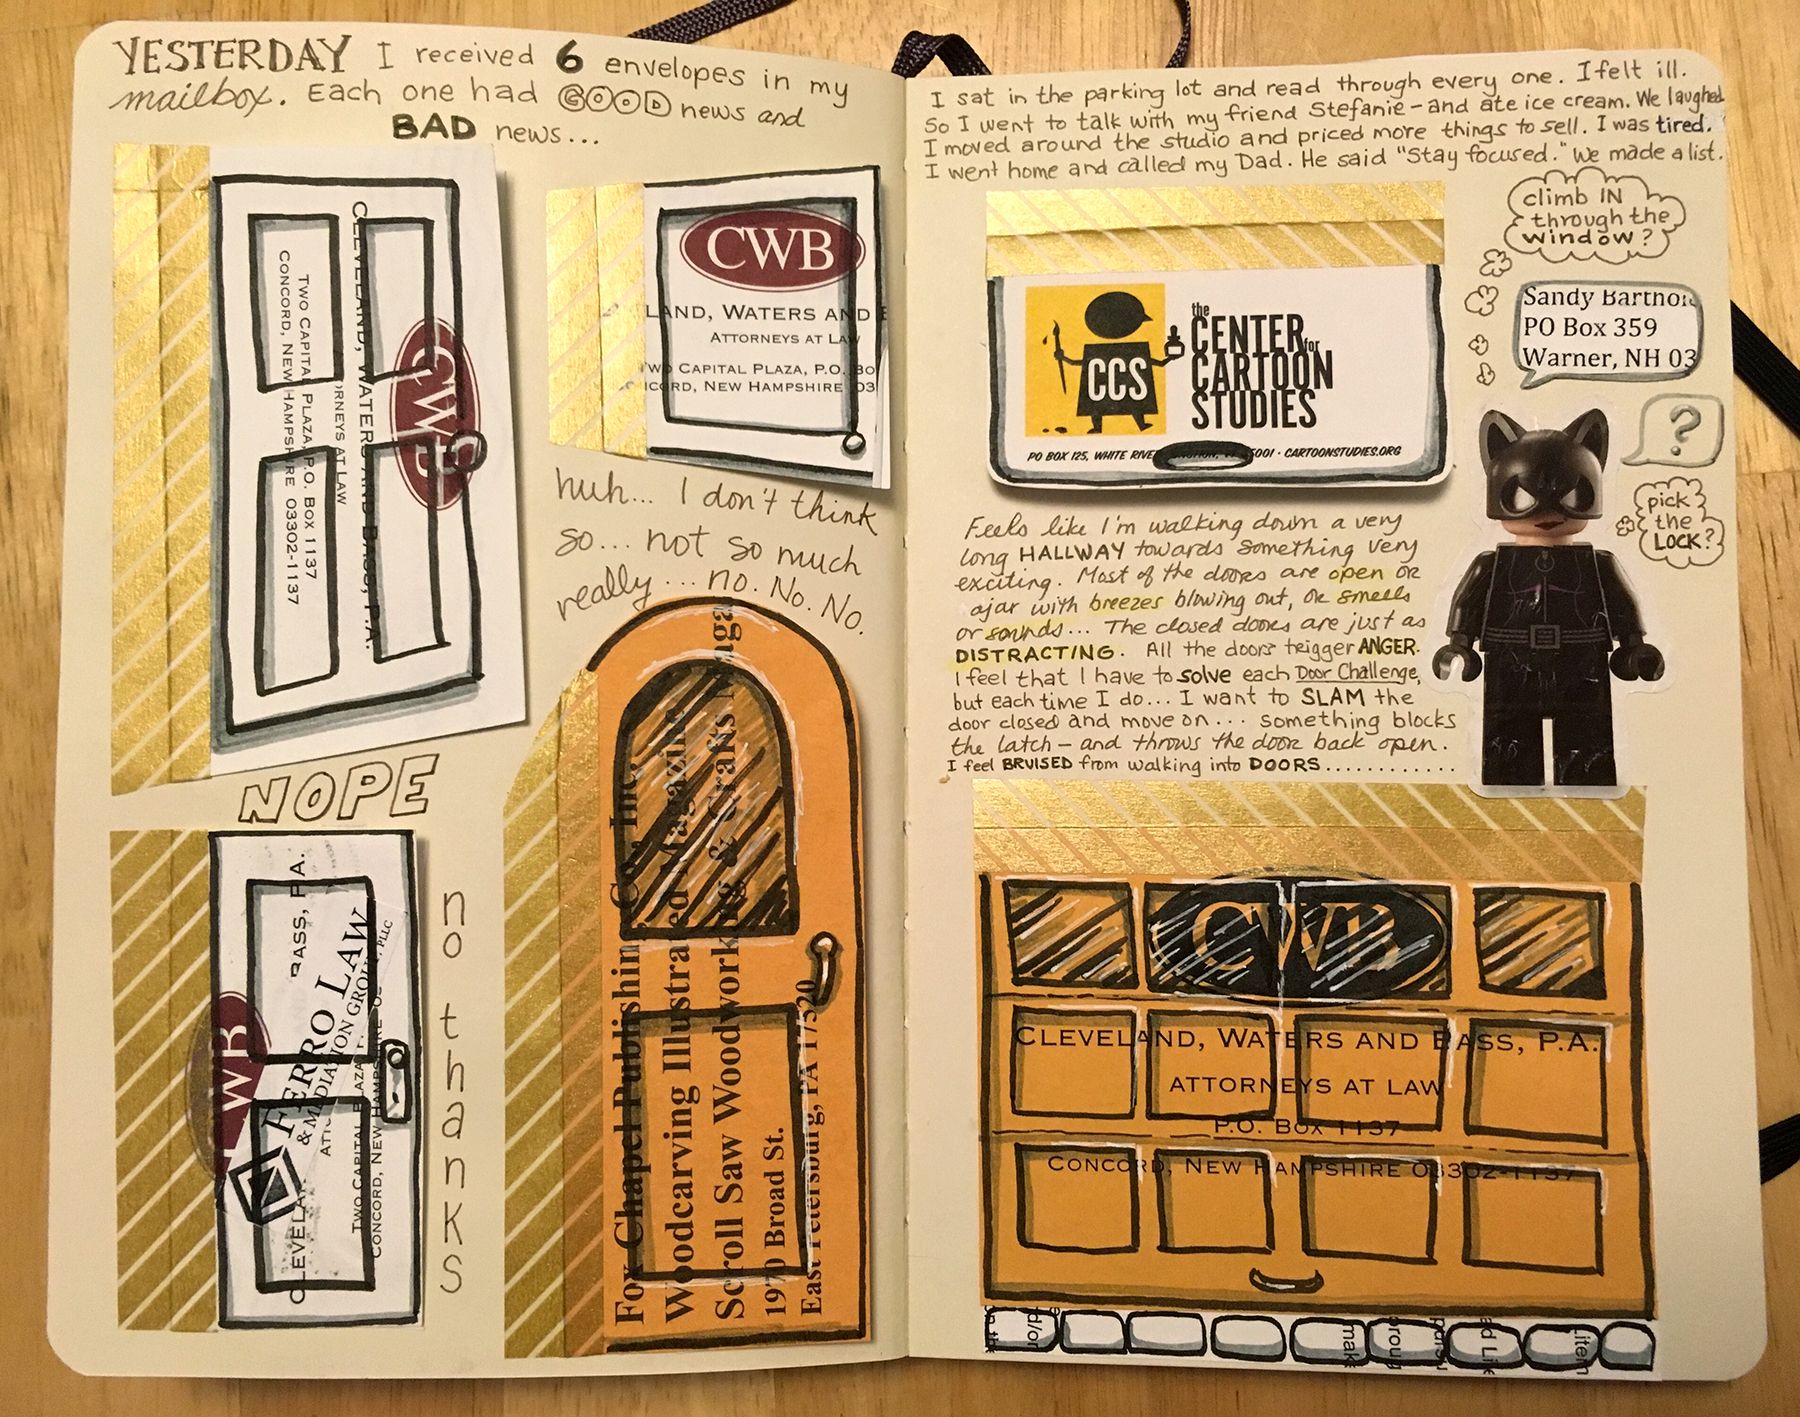 YESTERDAY I received 6 envelopes in my
mailbox. Each one had GOOD news and
BAD news...
CLEVELAND, WATERS AND BASS, P.A.
ATTORNEYS AT LAW
TWO CAPITAL PLAZA, P.O. BOX 1137
CONCORD, NEW HAMPSHIRE 03302-1137
CWB
NOPE
CWB
LAND, WATERS AND B
ATTORNEYS AT LAW
TWO CAPITAL PLAZA, P.O. BO
CORD, NEW HAMPSHIRE 03
huh... I don't think
so... not so much
really... no. No. No.
BASS, P.A.
CLEVELAN
CWB
FERRO LAW
& MEDIATION GROUP, PLLC
TWO CAPITAL PLAZA
CONCORD, NEW HAMPSHIRE
no thanks
Fox Chapel Publishing Co. Inc.
Woodcarving Illustrated Magazine
Scroll Saw Woodworking & Crafts Maga
1970 Broad St.
East Petersburg, PA 17520
I sat in the parking lot and read through every one. I felt ill.
So I went to talk with my friend Stefanie - and ate ice cream. We laughed
I moved around the studio and priced more things to sell. I was tired.
I went home and called my Dad. He said "Stay focused." We made a list.
the
CENTER for
CARTOON
STUDIES
CCS
PO BOX 125, WHITE RIVE 5001 · CARTOONSTUDIES.ORG
climb IN
through the
window?
Sandy Barthol
PO Box 359
Warner, NH 03
?
pick
the
LOCK?
Feels like I'm walking down a very
long HALLWAY towards something very
exciting. Most of the doors are open or
ajar with breezes blowing out, or smells
or sounds... The closed doors are just as
DISTRACTING. All the doors trigger ANGER.
I feel that I have to solve each Door Challenge,
but each time I do... I want to SLAM the
door closed and move on... something blocks
the latch - and throws the door back open.
I feel BRUISED from walking into DOORS............
CWB
CLEVELAND, WATERS AND BASS, P.A.
ATTORNEYS AT LAW
P.O. BOX 1137
CONCORD, NEW HAMPSHIRE 03302-1137
d/or
mak
roug
ad Lik
item